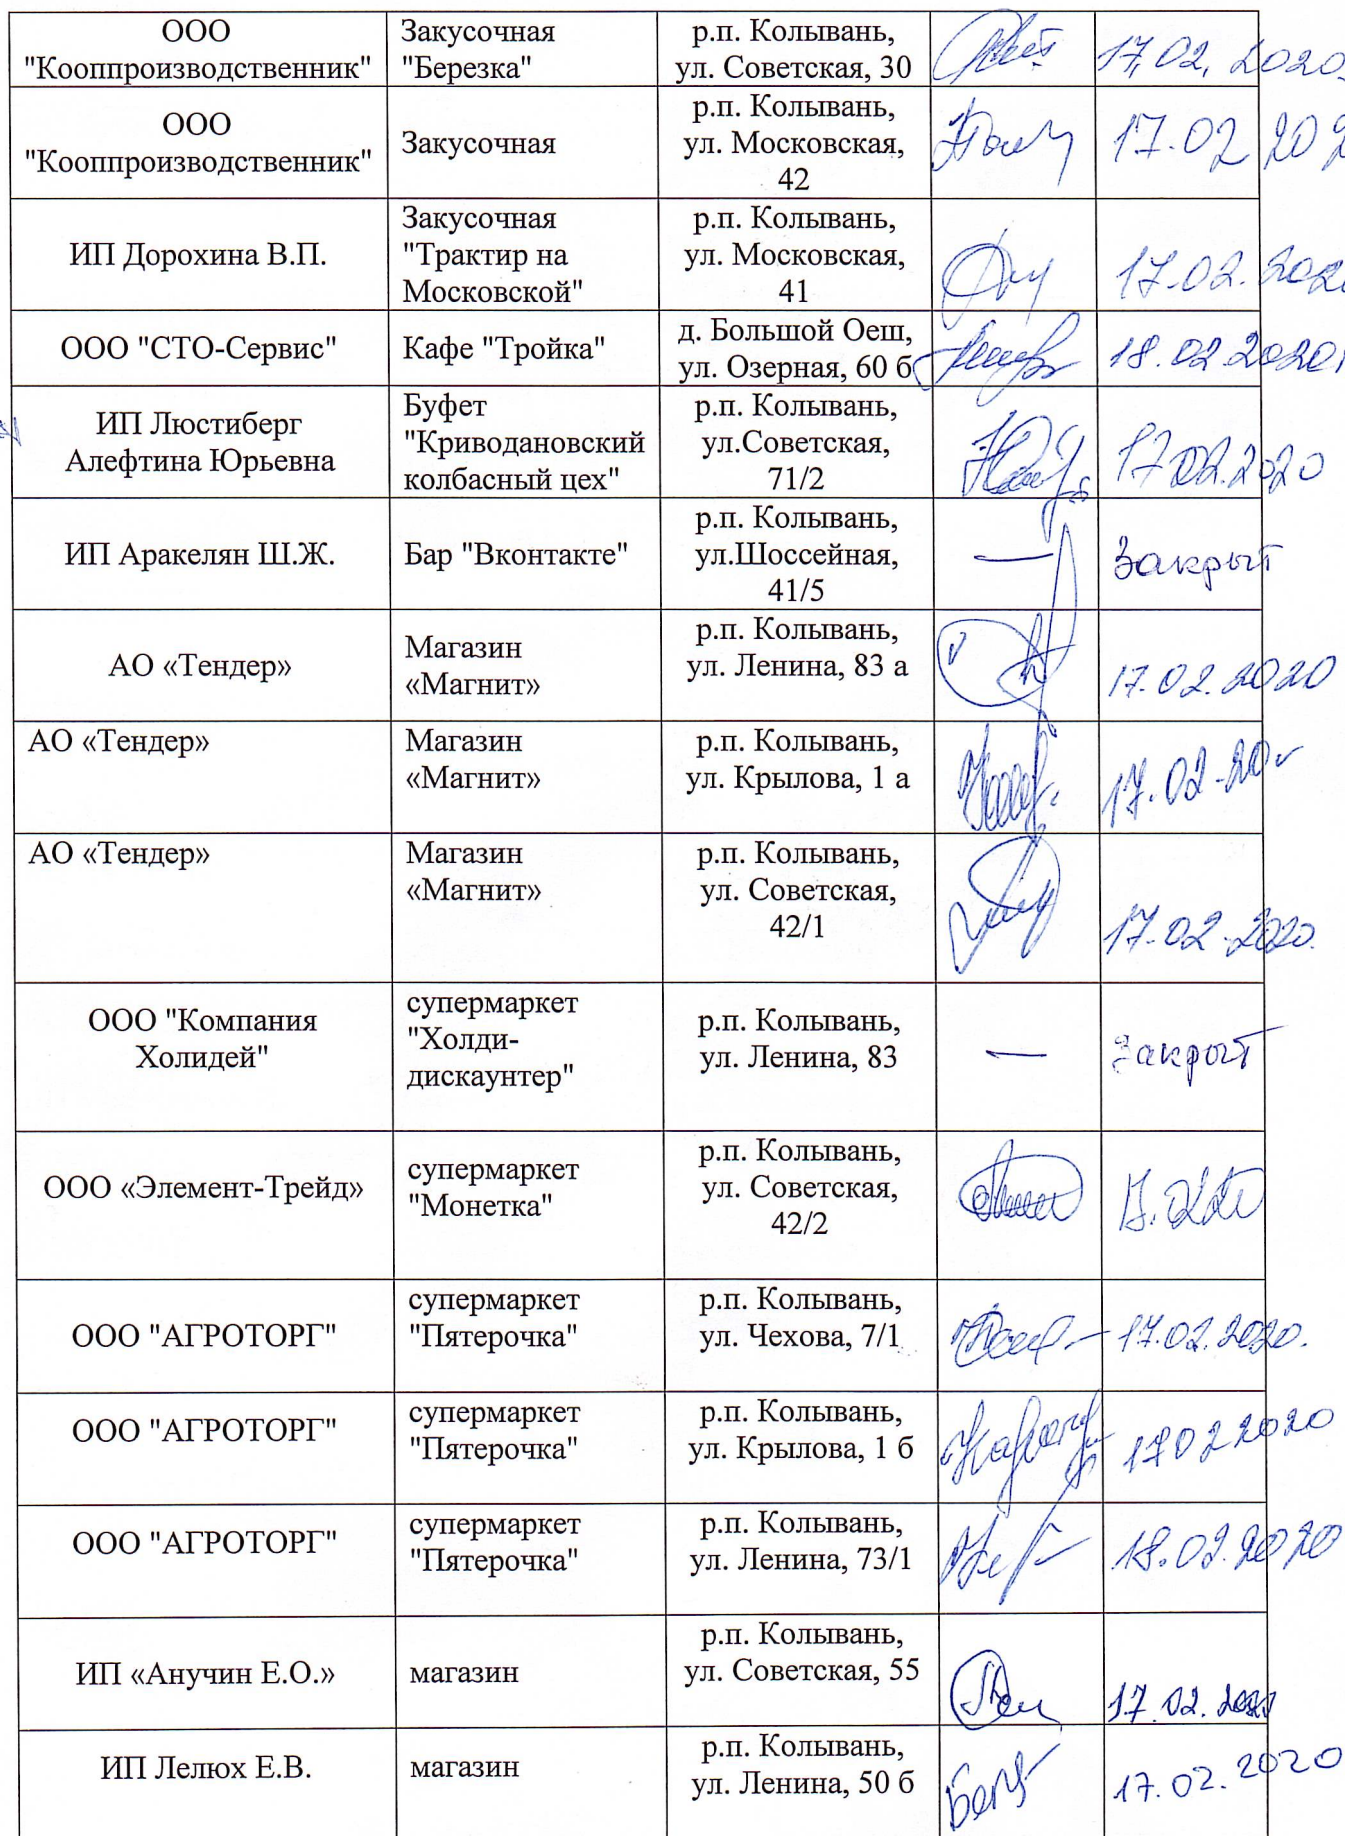 ООО
"Кооппроизводственник"
Закусочная
"Березка"
р.п. Колывань,
ул. Советская, 30
17.02.2020
ООО
"Кооппроизводственник"
Закусочная
р.п. Колывань,
ул. Московская,
42
17.02 202
ИП Дорохина В.П.
Закусочная
"Трактир на
Московской"
р.п. Колывань,
ул. Московская,
41
17.02.2020
ООО "СТО-Сервис"
Кафе "Тройка"
д. Большой Оеш,
ул. Озерная, 60 б
18.02.2020
ИП Люстиберг
Алефтина Юрьевна
Буфет
"Криводановский
колбасный цех"
р.п. Колывань,
ул.Советская,
71/2
17.02.2020
ИП Аракелян Ш.Ж.
Бар "Вконтакте"
р.п. Колывань,
ул.Шоссейная,
41/5
—
Закрыт
АО «Тендер»
Магазин
«Магнит»
р.п. Колывань,
ул. Ленина, 83 а
17.02.2020
АО «Тендер»
Магазин
«Магнит»
р.п. Колывань,
ул. Крылова, 1 а
17.02-20г
АО «Тендер»
Магазин
«Магнит»
р.п. Колывань,
ул. Советская,
42/1
17.02.2020.
ООО "Компания
Холидей"
супермаркет
"Холди-
дискаунтер"
р.п. Колывань,
ул. Ленина, 83
—
Закрыт
ООО «Элемент-Трейд»
супермаркет
"Монетка"
р.п. Колывань,
ул. Советская,
42/2
ООО "АГРОТОРГ"
супермаркет
"Пятерочка"
р.п. Колывань,
ул. Чехова, 7/1
17.02.2020.
ООО "АГРОТОРГ"
супермаркет
"Пятерочка"
р.п. Колывань,
ул. Крылова, 1 б
17 02 2020
ООО "АГРОТОРГ"
супермаркет
"Пятерочка"
р.п. Колывань,
ул. Ленина, 73/1
18.02.2020
ИП «Анучин Е.О.»
магазин
р.п. Колывань,
ул. Советская, 55
17.02.2020
ИП Лелюх Е.В.
магазин
р.п. Колывань,
ул. Ленина, 50 б
17.02.2020